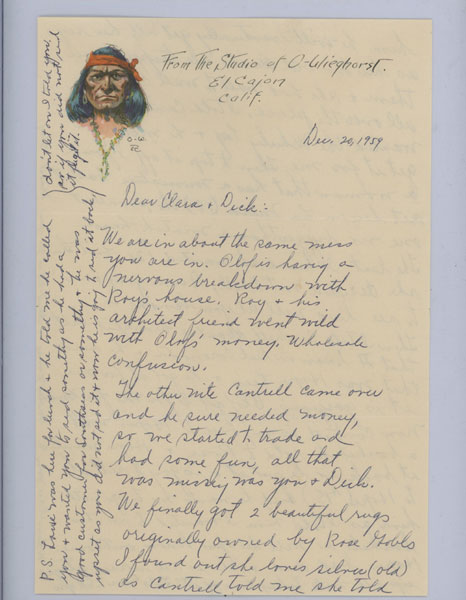 From The Studio of O-Wieghorst.
El Cajon
Calif.
O-W.
Dec. 20, 1959
Dear Clara & Dick:
We are in about the same mess
you are in. Olof is having a
nervous breakdown with
Roy's house. Roy & his
architect friend went wild
with Olof's money. Wholesale
confusion.
The other nite Cantrell came over
and he sure needed money,
so we started to trade and
had some fun, all that
was missing was you & Dick.
We finally got 2 beautiful rugs
originally owned by Rose
I found out she loves silver (old)
as Cantrell told me she told
P.S. was here for lunch & he told me he called
you & wanted you to send something as he had a
good customer for something he was
upset as you did not send it & now he is going to send it back
don't let on I told you
or if you did not send
it forget it.